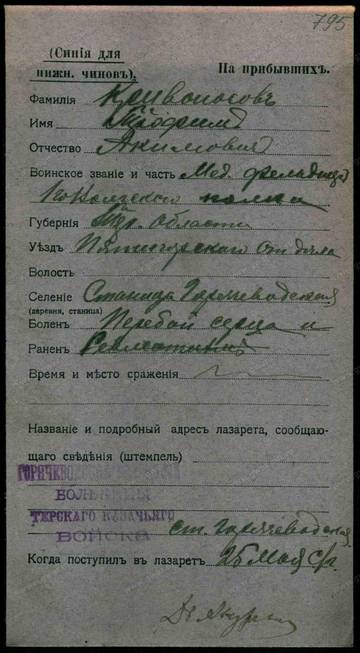 795
(Синія для
нижн. чиновъ).
На прибывшихъ.
Фамилія Кривоносовъ
Имя Трофимъ
Отчество Акимовичъ
Воинское званіе и часть Мед. фельдшеръ
полка
Губернія Тер. области
Уѣздъ Пятигорскаго отдѣла
Волость
Селеніе Станица Горячеводская
(деревня, станица)
Боленъ Перебой сердца и
Раненъ Ревматизмъ
Время и мѣсто сраженія
Названіе и подробный адресъ лазарета, сообщаю-
щаго свѣдѣнія (штемпель)
БОЛЬНИЦЫ
ТЕРСКАГО КАЗАЧЬЯГО
ВОЙСКА
ст. Горячеводская
Когда поступилъ въ лазаретъ 25 Мая с/г.